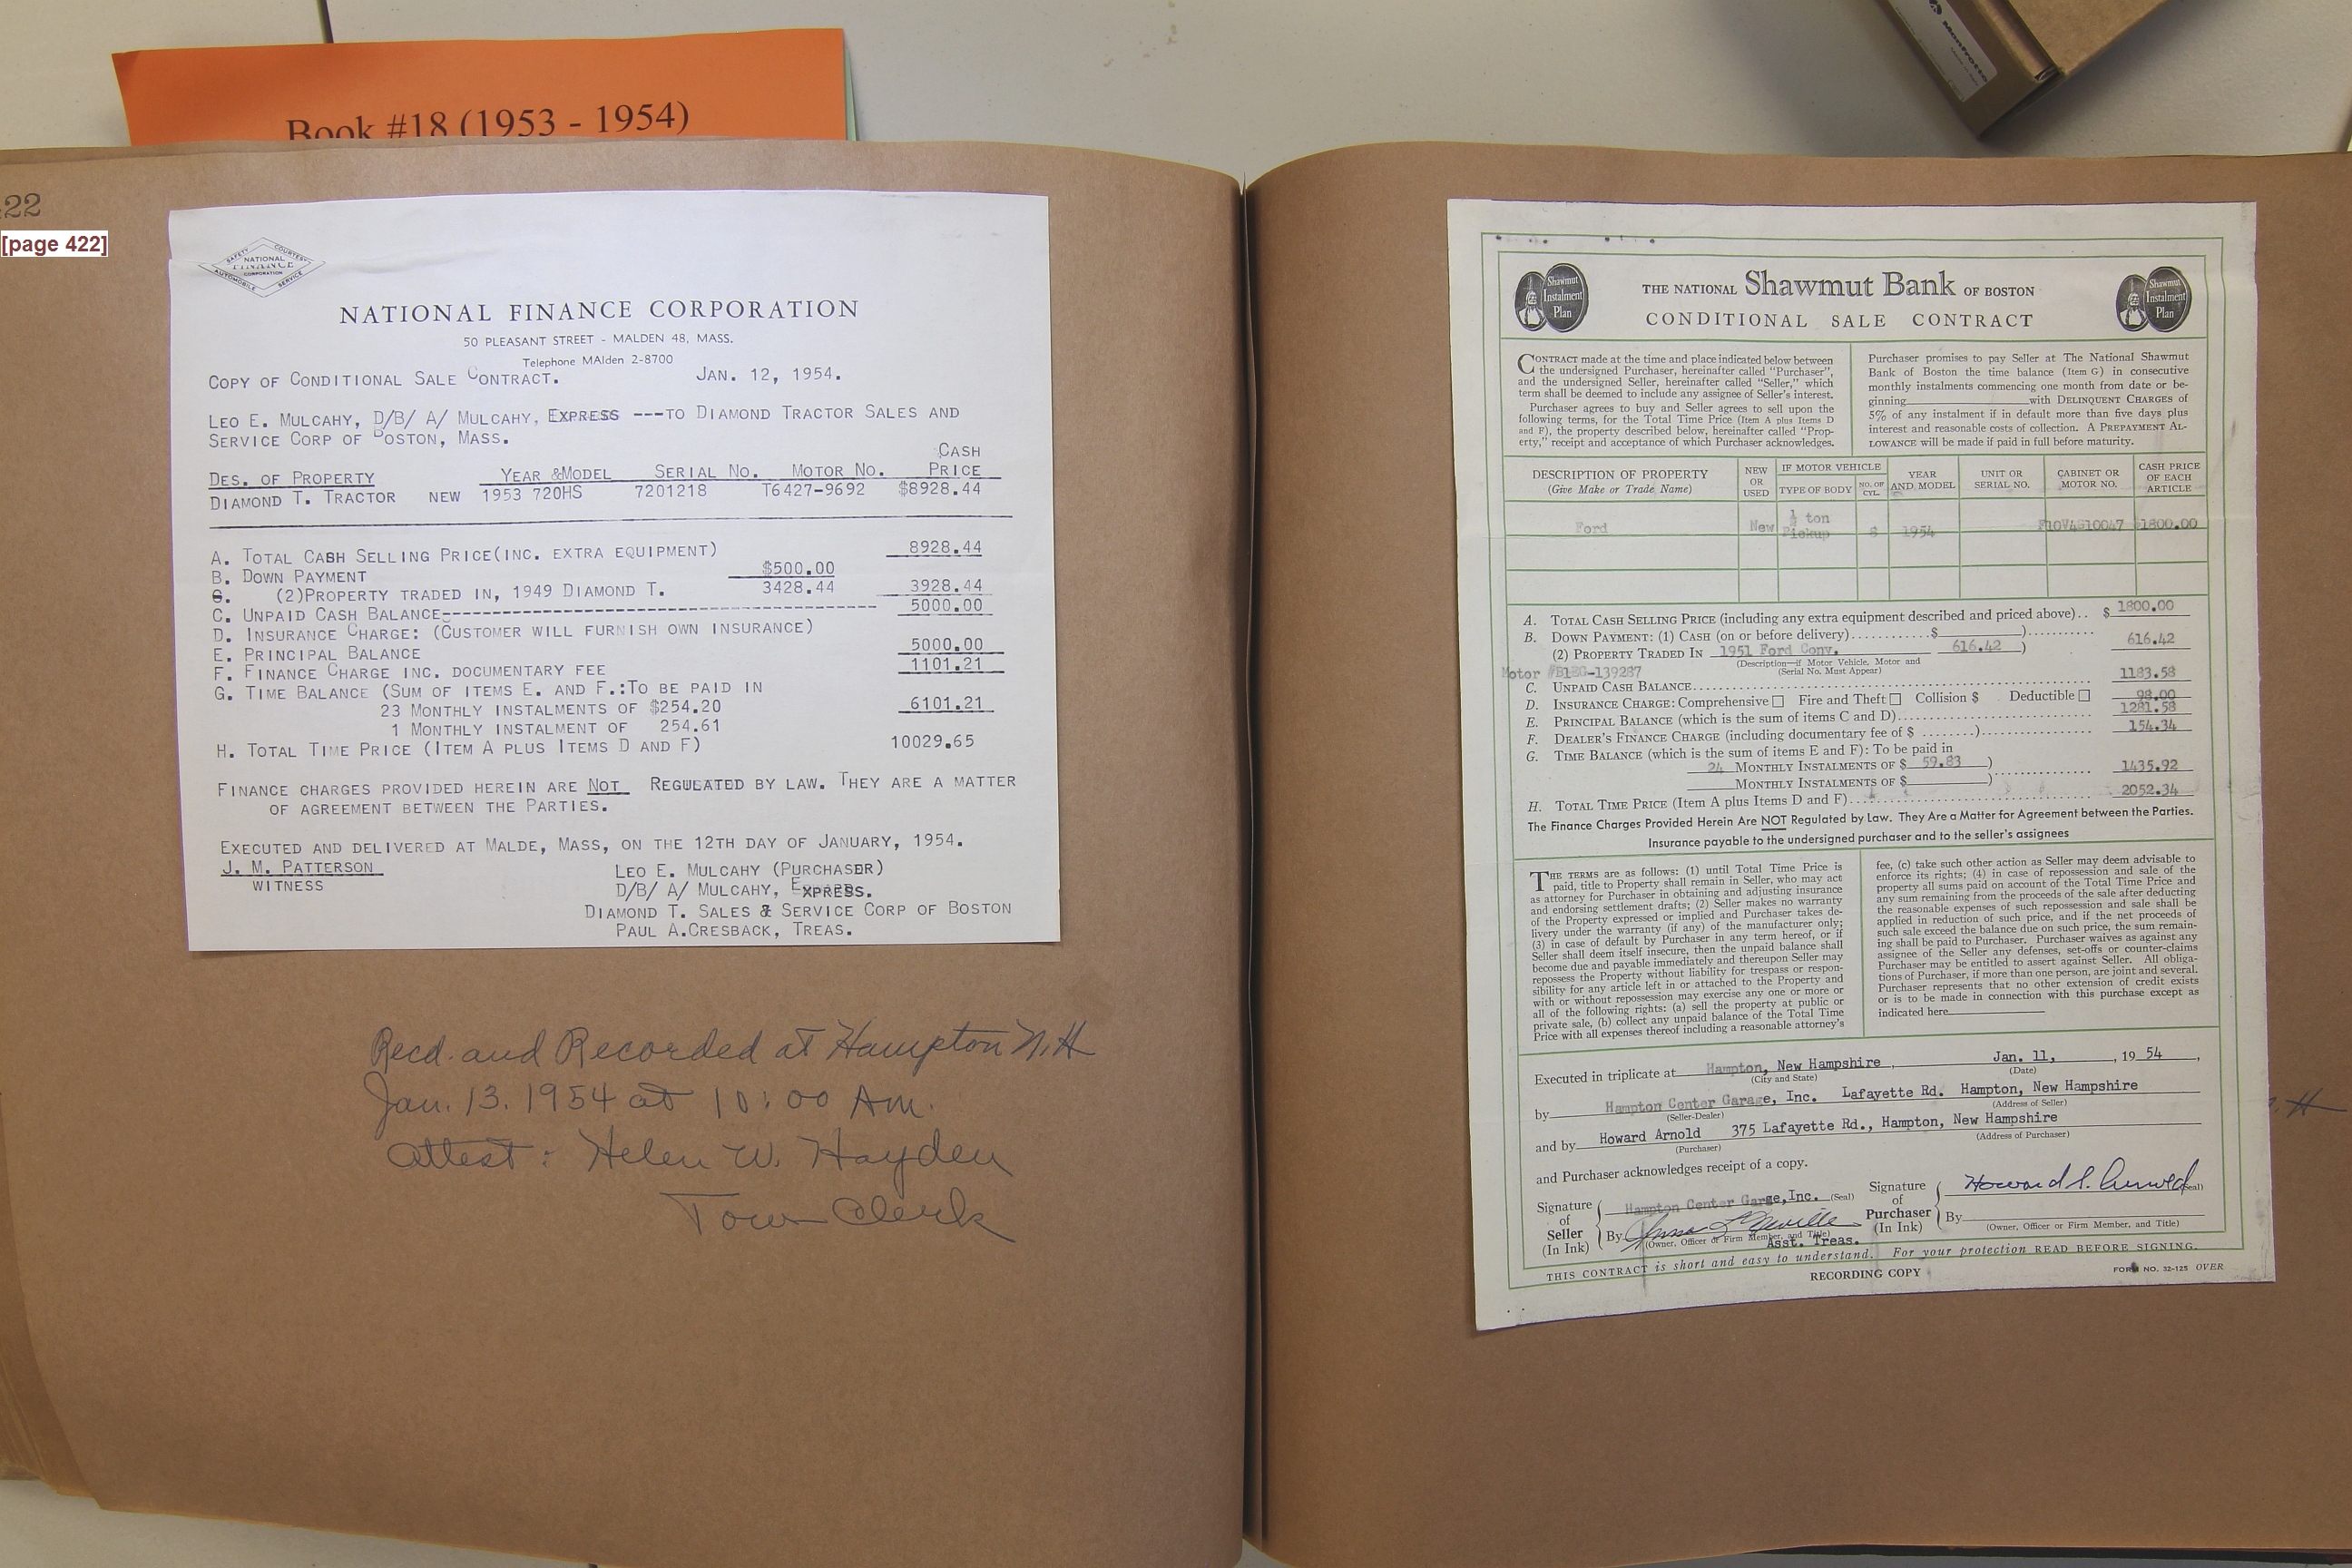 Book #18 (1953 - 1954)
Manfrotto
22
[page 422]
SAFETY COURTESY
NATIONAL
FINANCE
CORPORATION
AUTOMOBILE SERVICE
NATIONAL FINANCE CORPORATION
50 PLEASANT STREET - MALDEN 48, MASS.
Telephone MAlden 2-8700
COPY OF CONDITIONAL SALE CONTRACT. JAN. 12, 1954.
LEO E. MULCAHY, D/B/ A/ MULCAHY, EXPRESS ---TO DIAMOND TRACTOR SALES AND
SERVICE CORP OF BOSTON, MASS.
CASH
DES. OF PROPERTY YEAR &MODEL SERIAL NO. MOTOR NO. PRICE
DIAMOND T. TRACTOR NEW 1953 720HS 7201218 T6427-9692 $8928.44
A. TOTAL CASH SELLING PRICE(INC. EXTRA EQUIPMENT) 8928.44
B. DOWN PAYMENT $500.00
(2)PROPERTY TRADED IN, 1949 DIAMOND T. 3428.44 3928.44
C. UNPAID CASH BALANCE------------------------------------------- 5000.00
D. INSURANCE CHARGE: (CUSTOMER WILL FURNISH OWN INSURANCE)
E. PRINCIPAL BALANCE 5000.00
F. FINANCE CHARGE INC. DOCUMENTARY FEE 1101.21
G. TIME BALANCE (SUM OF ITEMS E. AND F.:TO BE PAID IN
23 MONTHLY INSTALMENTS OF $254.20 6101.21
1 MONTHLY INSTALMENT OF 254.61
H. TOTAL TIME PRICE (ITEM A PLUS ITEMS D AND F) 10029.65
FINANCE CHARGES PROVIDED HEREIN ARE NOT REGULATED BY LAW. THEY ARE A MATTER
OF AGREEMENT BETWEEN THE PARTIES.
EXECUTED AND DELIVERED AT MALDE, MASS, ON THE 12TH DAY OF JANUARY, 1954.
J. M. PATTERSON
WITNESS
LEO E. MULCAHY (PURCHASER)
D/B/ A/ MULCAHY, EXPRESS.
DIAMOND T. SALES & SERVICE CORP OF BOSTON
PAUL A.CRESBACK, TREAS.
Recd. and Recorded at Hampton N.H
Jan. 13. 1954 at 10:00 Am.
Attest: Helen W. Hayden
Town Clerk
Shawmut Instalment Plan
THE NATIONAL Shawmut Bank OF BOSTON
CONDITIONAL SALE CONTRACT
Shawmut Instalment Plan
CONTRACT made at the time and place indicated below between
the undersigned Purchaser, hereinafter called "Purchaser",
and the undersigned Seller, hereinafter called "Seller," which
term shall be deemed to include any assignee of Seller's interest.
Purchaser agrees to buy and Seller agrees to sell upon the
following terms, for the Total Time Price (Item A plus Items D
and F), the property described below, hereinafter called "Prop-
erty," receipt and acceptance of which Purchaser acknowledges.
Purchaser promises to pay Seller at The National Shawmut
Bank of Boston the time balance (Item G) in consecutive
monthly instalments commencing one month from date or be-
ginning with DELINQUENT CHARGES of
5% of any instalment if in default more than five days plus
interest and reasonable costs of collection. A PREPAYMENT AL-
LOWANCE will be made if paid in full before maturity.
DESCRIPTION OF PROPERTY
(Give Make or Trade Name)
NEW OR USED
IF MOTOR VEHICLE
TYPE OF BODY
NO. OF CYL.
YEAR AND MODEL
UNIT OR SERIAL NO.
CABINET OR MOTOR NO.
CASH PRICE OF EACH ARTICLE
Ford New ½ ton Pickup 8 1954 F10V4G10047 $1800.00
A. TOTAL CASH SELLING PRICE (including any extra equipment described and priced above).. $ 1800.00
B. DOWN PAYMENT: (1) CASH (on or before delivery)...........$ )..........
(2) PROPERTY TRADED IN 1951 Ford Conv. 616.42 ) 616.42
(Description—if Motor Vehicle, Motor and
(Serial No. Must Appear)
Motor #B1EG-139287
C. UNPAID CASH BALANCE.......... 1183.58
D. INSURANCE CHARGE: Comprehensive ☐ Fire and Theft ☐ Collision $ Deductible ☐ 98.00
E. PRINCIPAL BALANCE (which is the sum of items C and D).......... 1281.58
F. DEALER'S FINANCE CHARGE (including documentary fee of $ ........).......... 154.34
G. TIME BALANCE (which is the sum of items E and F): To be paid in
24 MONTHLY INSTALMENTS OF $ 59.83 )
MONTHLY INSTALMENTS OF $ ).......... 1435.92
H. TOTAL TIME PRICE (Item A plus Items D and F).......... 2052.34
The Finance Charges Provided Herein Are NOT Regulated by Law. They Are a Matter for Agreement between the Parties.
Insurance payable to the undersigned purchaser and to the seller's assignees
THE TERMS are as follows: (1) until Total Time Price is
paid, title to Property shall remain in Seller, who may act
as attorney for Purchaser in obtaining and adjusting insurance
and endorsing settlement drafts; (2) Seller makes no warranty
of the Property expressed or implied and Purchaser takes de-
livery under the warranty (if any) of the manufacturer only;
(3) in case of default by Purchaser in any term hereof, or if
Seller shall deem itself insecure, then the unpaid balance shall
become due and payable immediately and thereupon Seller may
repossess the Property without liability for trespass or respon-
sibility for any article left in or attached to the Property and
with or without repossession may exercise any one or more or
all of the following rights: (a) sell the property at public or
private sale, (b) collect any unpaid balance of the Total Time
Price with all expenses thereof including a reasonable attorney's
fee, (c) take such other action as Seller may deem advisable to
enforce its rights; (4) in case of repossession and sale of the
property all sums paid on account of the Total Time Price and
any sum remaining from the proceeds of the sale after deducting
the reasonable expenses of such repossession and sale shall be
applied in reduction of such price, and if the net proceeds of
such sale exceed the balance due on such price, the sum remain-
ing shall be paid to Purchaser. Purchaser waives as against any
assignee of the Seller any defenses, set-offs or counter-claims
Purchaser may be entitled to assert against Seller. All obliga-
tions of Purchaser, if more than one person, are joint and several.
Purchaser represents that no other extension of credit exists
or is to be made in connection with this purchase except as
indicated here
Executed in triplicate at Hampton, New Hampshire, Jan. 11, , 19 54,
(City and State) (Date)
by Hampton Center Garage, Inc. Lafayette Rd. Hampton, New Hampshire
(Seller-Dealer) (Address of Seller)
and by Howard Arnold 375 Lafayette Rd., Hampton, New Hampshire
(Purchaser) (Address of Purchaser)
and Purchaser acknowledges receipt of a copy.
Signature of Seller (In Ink)
Hampton Center Garge,Inc. (Seal)
By
(Owner, Officer or Firm Member, and Title)
Asst. Treas.
Signature of Purchaser (In Ink)
Howard S. Arnold (Seal)
By
(Owner, Officer or Firm Member, and Title)
THIS CONTRACT is short and easy to understand. For your protection READ BEFORE SIGNING.
RECORDING COPY
FORM NO. 32-125 OVER